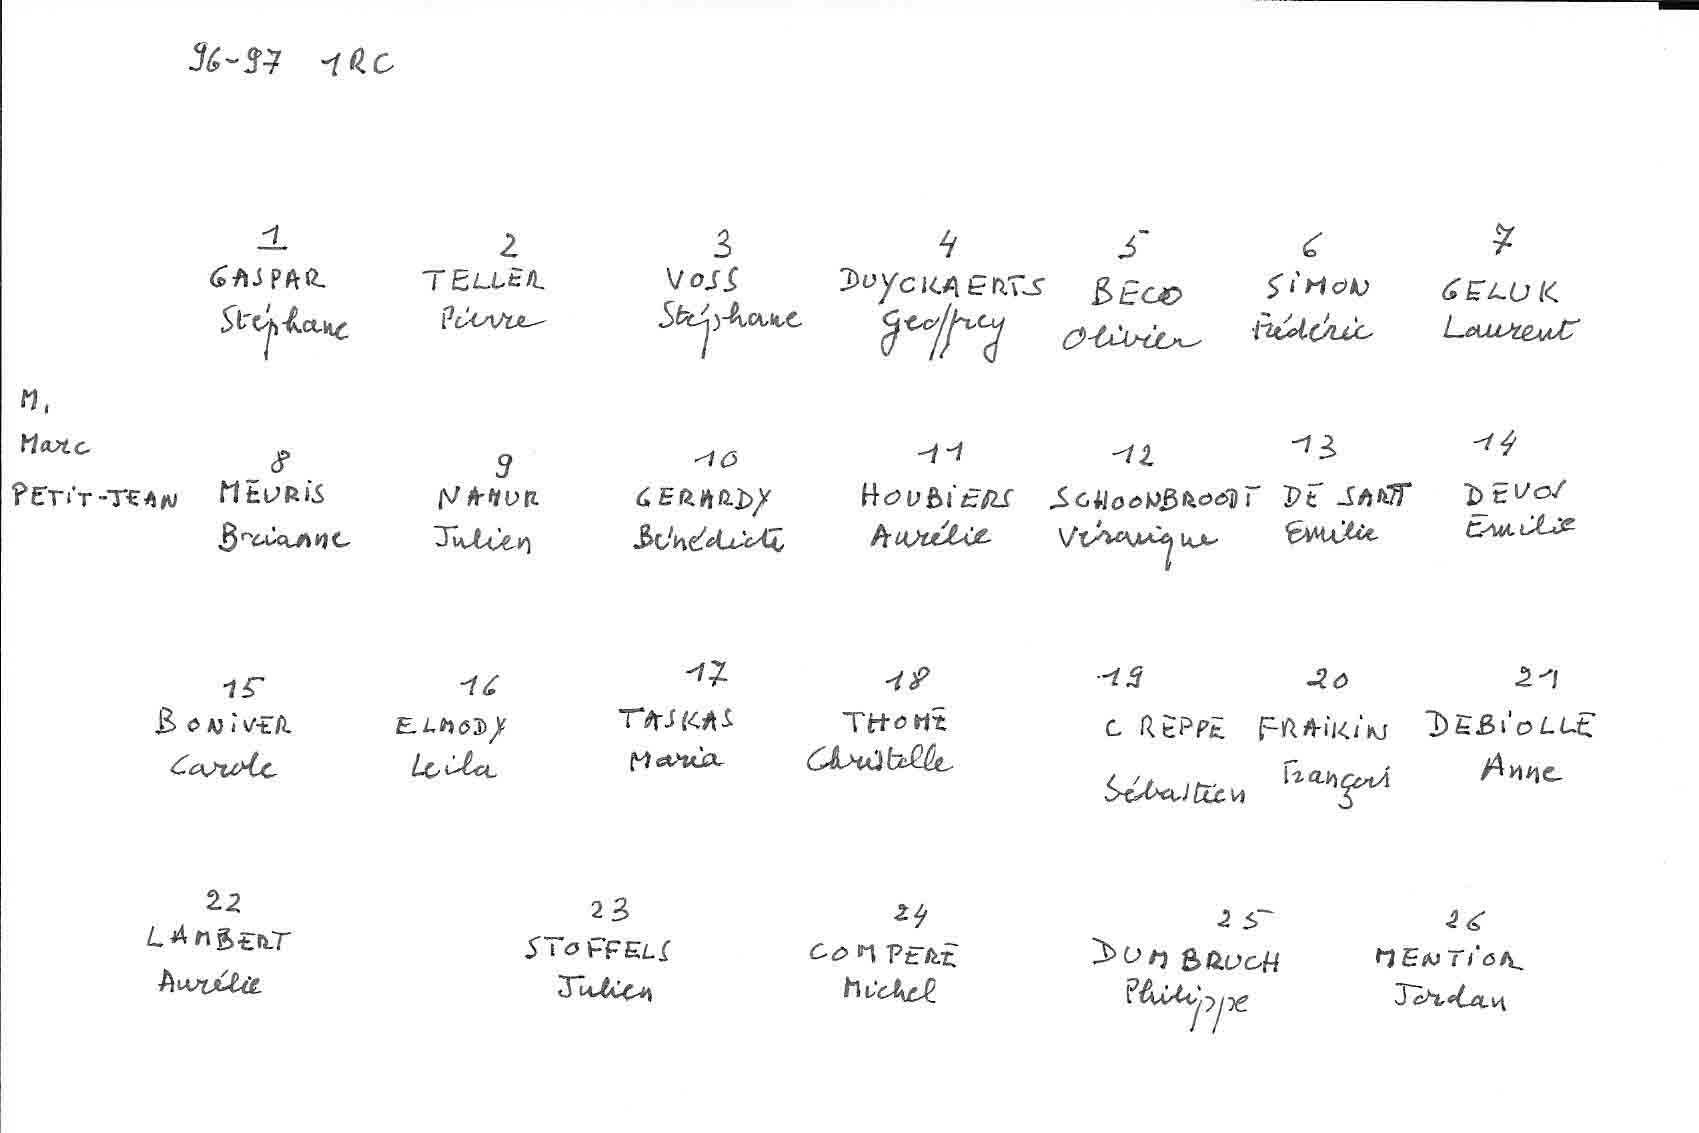 96-97 1RC
1 2 3 4 5 6 7
GASPAR TELLER VOSS DUYCKAERTS BECO SIMON GELUK
Stéphane Pierre Stéphane Geoffrey Olivier Frédéric Laurent
M.
Marc
PETIT-JEAN
8 9 10 11 12 13 14
MEURIS NAMUR GERARDY HOUBIERS SCHOONBROODT DE SART DEVOS
Julien Bénédicte Aurélie Véronique Emilie Emilie
15 16 17 18 19 20 21
BONIVER ELMODY TASKAS THOME CREPPE FRAIKIN DEBIOLLE
Carole Leila Maria Christelle Sébastien François Anne
22 23 24 25 26
LAMBERT STOFFELS COMPERE DUMBRUCH MENTIOR
Aurélie Julien Michel Philippe Jordan